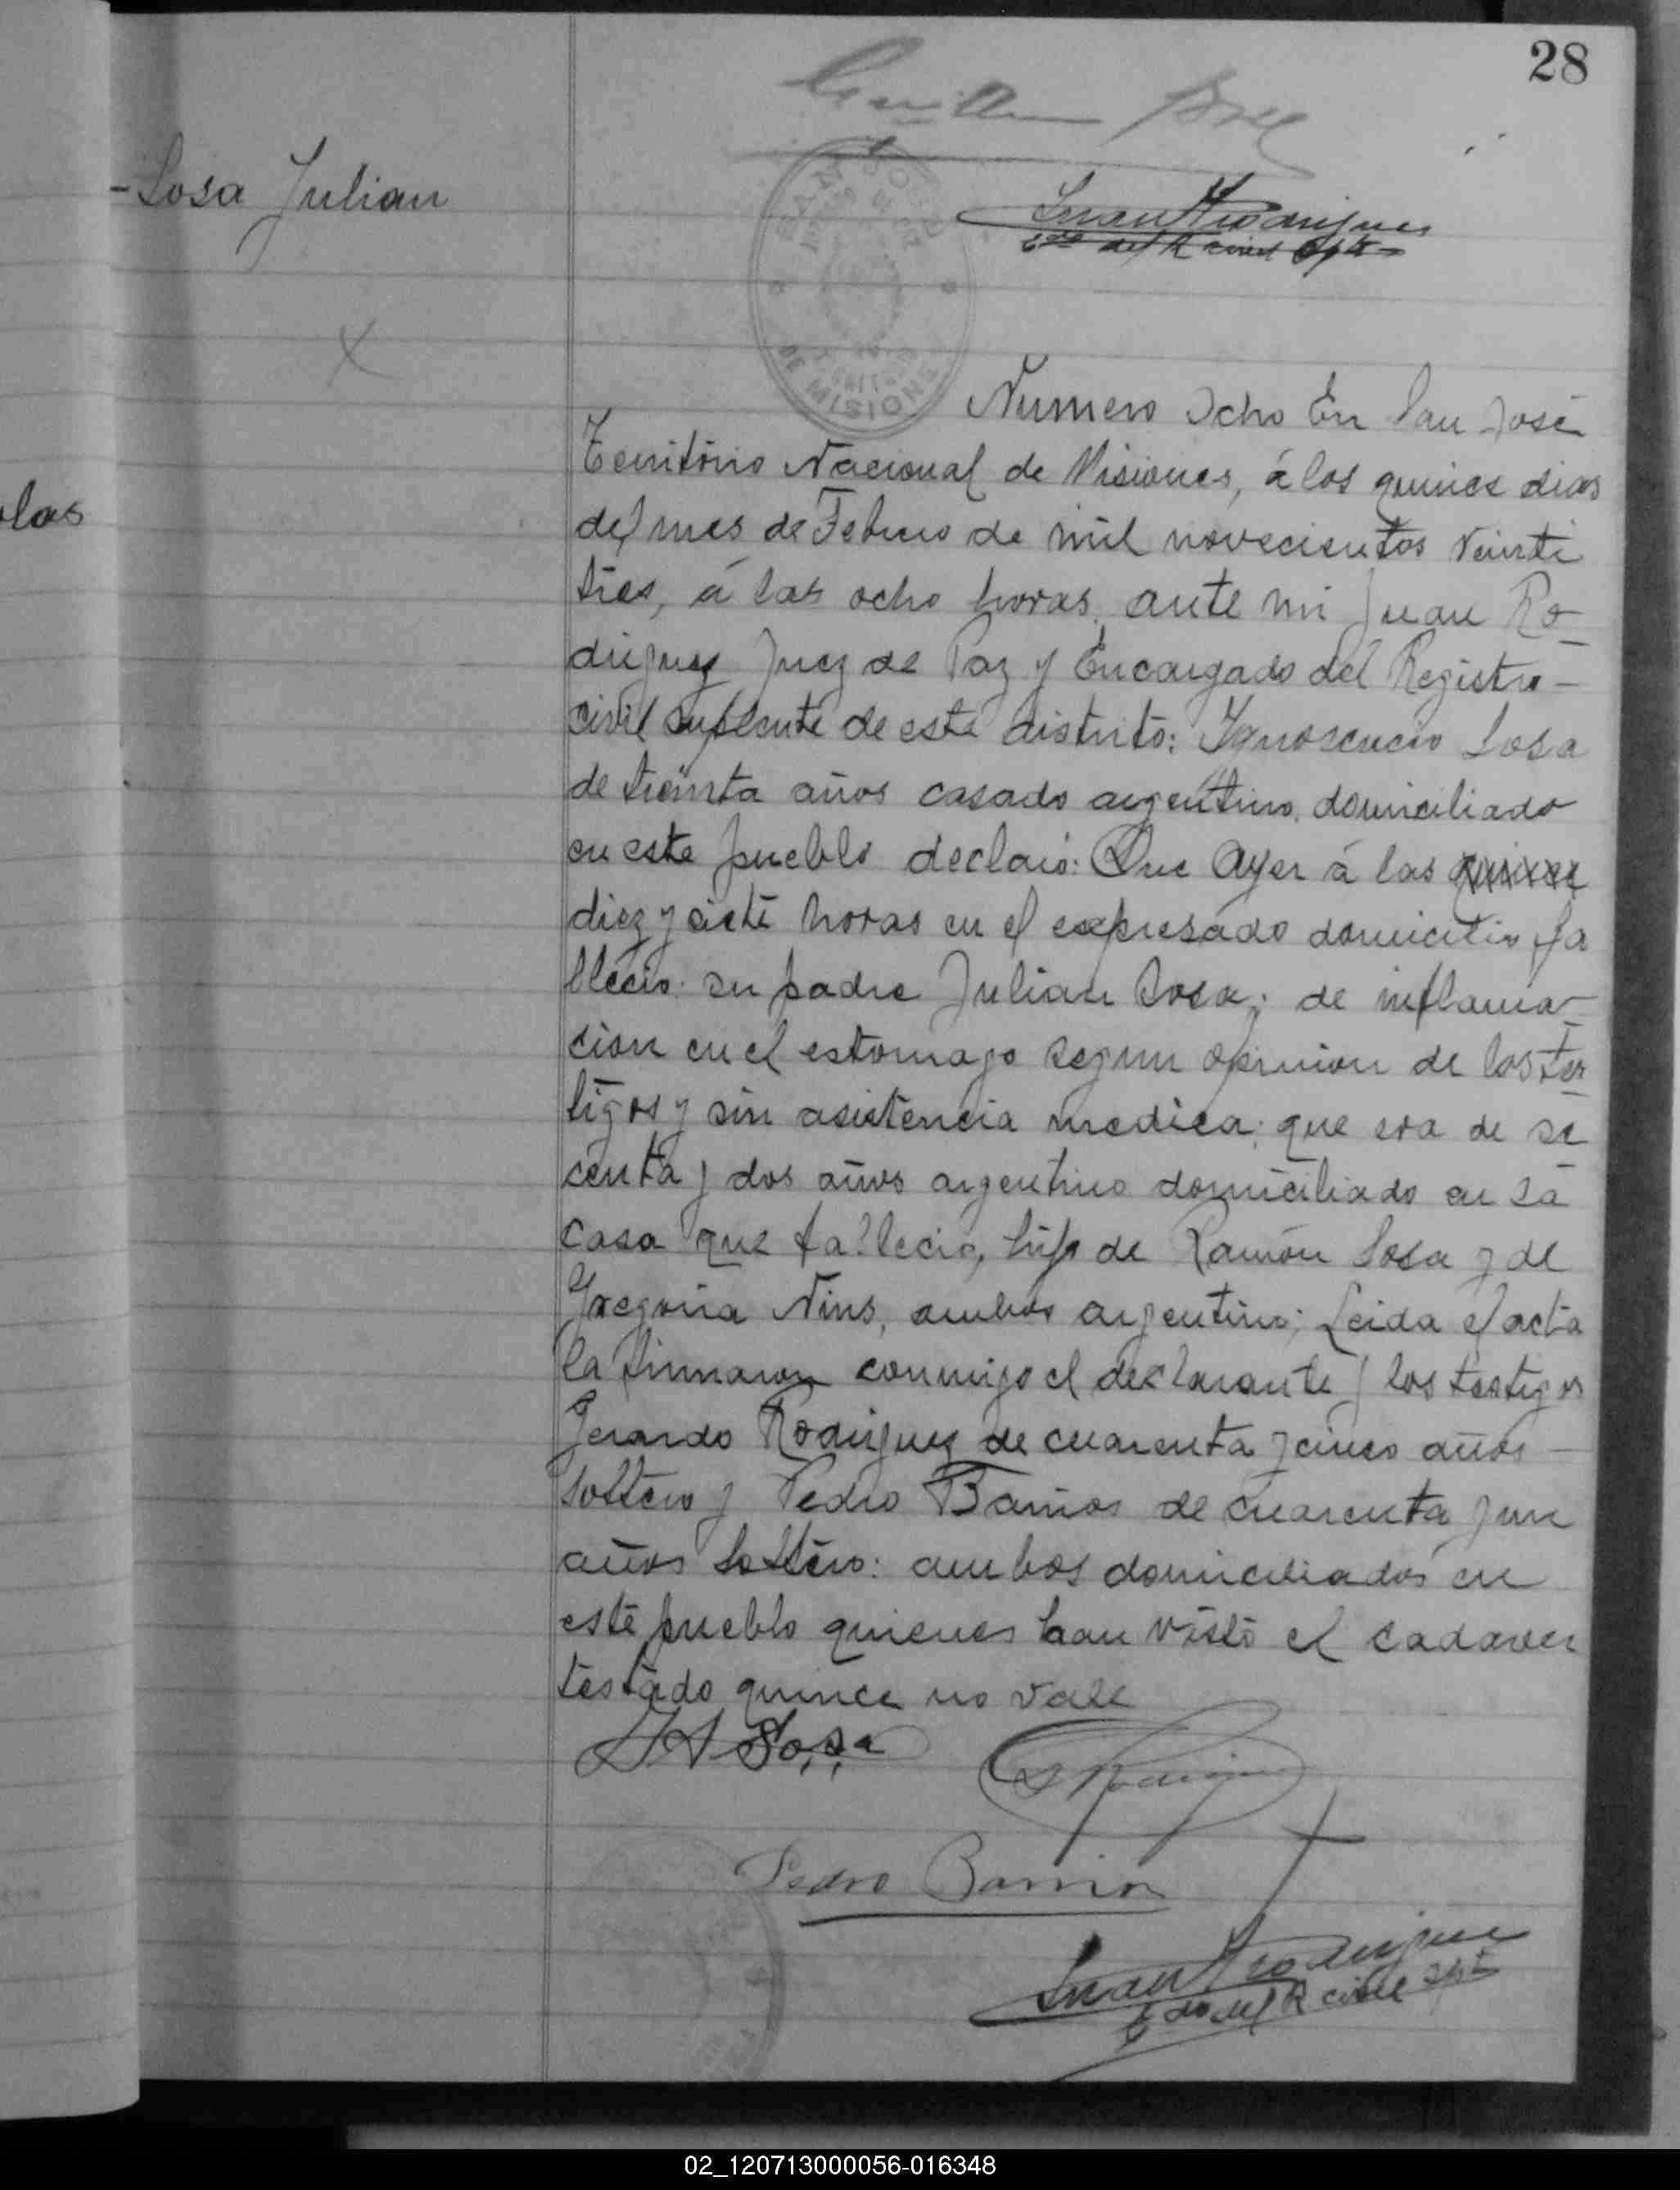 28
- Sosa Julian
Juan Rodriguez
Edo del R civil Splte
SAN JOSE
DE MISIONES
X
las
Numero Ocho En San José
Territorio Nacional de Misiones, á los quince dias
del mes de Febrero de mil novecientos veinti
tres, á las ocho horas, ante mi Juan Ro-
driguez Juez de Paz y Encargado del Registro -
civil suplente de este distrito: Sosa
de treinta años casado argentino, domiciliado
en este pueblo declaró: Que Ayer á las quince
diez y siete horas en el expresado domicilio fa
llecio: su padre Julian Sosa; de inflama-
cion en el estomago segun opinion de los tes
tigos y sin asistencia medica; que era de se
centa y dos años argentino domiciliado en la
casa que fallecio, hijo de Ramón Sosa y de
Gregoria Nins, ambos argentino; Leida el acta
la firmaron conmigo el declarante y los testigos
Gerardo Rodriguez de cuarenta y cinco años -
soltero y Pedro Barrios de cuarenta y un
años soltero: ambos domiciliados en
este pueblo quienes han visto el cadaver
testado quince no vale
Sosa
G Rodriguez
Pedro Barrios
Juan Rodriguez
Edo del R civil Splte
02_120713000056-016348